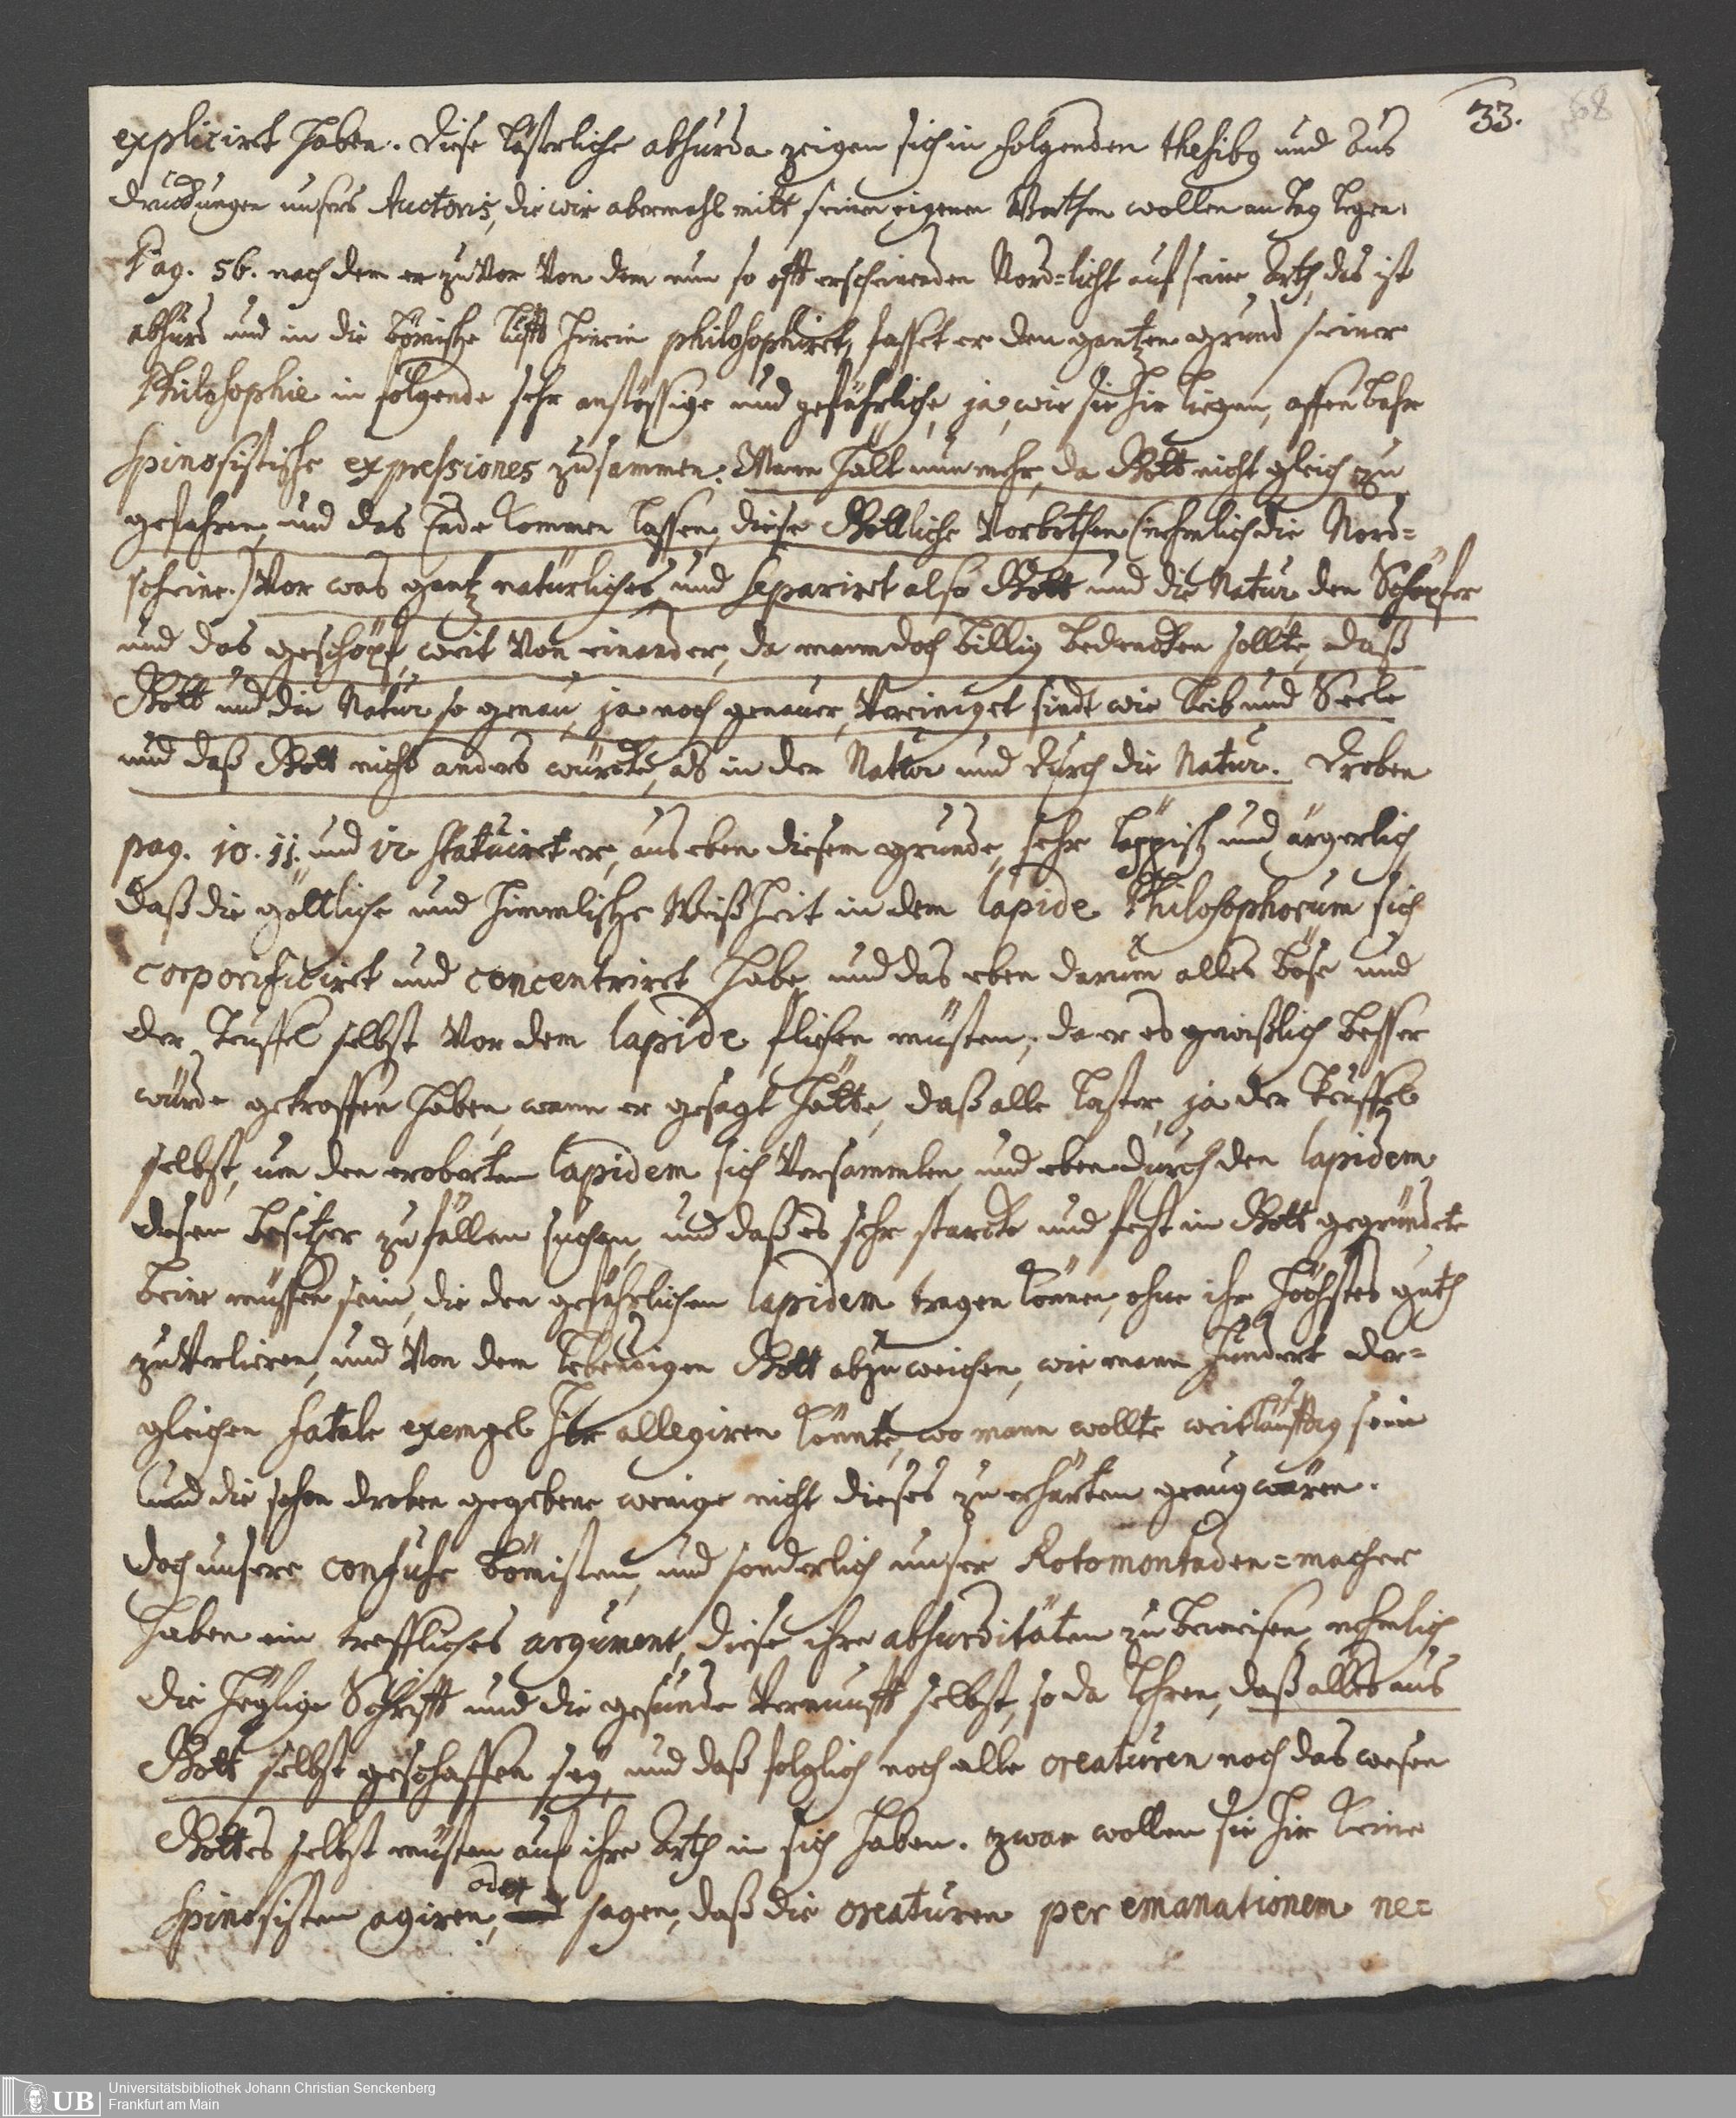 33.
68
explicirt haben. Diese lästerliche absurda zeigen sich in folgenden thesibus und Aus
druckungen unsers Auctoris, die wir abermahl mitt seinen eigenen Worthen wollen an tag legen.
Pag. 56. nach dem er zuvor von dem nun so offt erscheinenden Nord=licht auf seine Arth, das ist
absurd und in die Bömische lufft hinein philosophiret, fasset er den gantzen grund seiner
Philosophie in folgende sehr anstössige und gefährliche, ja, wie sie hir liegen, offenbahr
Spinosistische expressiones zusammen: Mann hält nun mehr, da Gott nicht gleich zu
gefahren, und das Ende kommen lassen, diese Göttliche Vorbothen (nehmlich die Nord=
scheine.) vor was gantz natürliches, und separirt also Gott und die Natur den Schöpfer
und das geschöpf, weit von einander, da mann doch billig bedencken sollte, daß
Gott und die Natur so genau, ja noch genauer, vereiniget sindt wie Leib und Seele
und daß Gott nicht anders würcke, als in der Natur und durch die Natur. Droben
pag. 10. 11. und 12 statuiret er, aus eben diesem grunde, sehr läppisch und ärgerlich,
daß die göttliche und himmlische Weißheit in dem lapide Philosophorum sich
corporificirt und concentrirt habe, und das eben darum alles böse und
der Teuffel selbst vor dem lapide fliehen müsten; da er es gewißlich besser
würde getroffen haben, wann er gesagt hätte, daß alle laster, ja der Teuffel
selbst, um den eroberten lapidem sich versammlen, und eben durch den lapidem
desen besitzer zu fällen suchen, und daß es sehr starcke und fest in Gott gegründete
beine müssen sein, die den gefährlichen lapidem tragen können, ohne ihr höchstes guth
zu verlieren, und von dem lebendigen Gott abzuweichen, wie mann hundert der=
gleichen fatale exempel hir allegiren könnte, wo mann wollte weitläufftig sein
und die schon droben gegebene wenige nicht dieses zu erhärten genug wären.
Doch unsere confuse Bömisten, und sonderlich unser Rotomontaden=macher
haben ein treffliches argument, diese ihre absurditäten zu beweisen, nehmlich
die heylige Schrifft und die gesunde Vernunfft selbst, so da lehren, daß alles aus
Gott selbst geschaffen sey, und daß folglich noch alle creaturen noch das wesen
Gottes selbst müsten auf ihre Arth in sich haben. zwar wollen sie hir keine
Spinosisten agiren, oder sagen, daß die creaturen per emanationem ne=
UB
Universitätsbibliothek Johann Christian Senckenberg
Frankfurt am Main